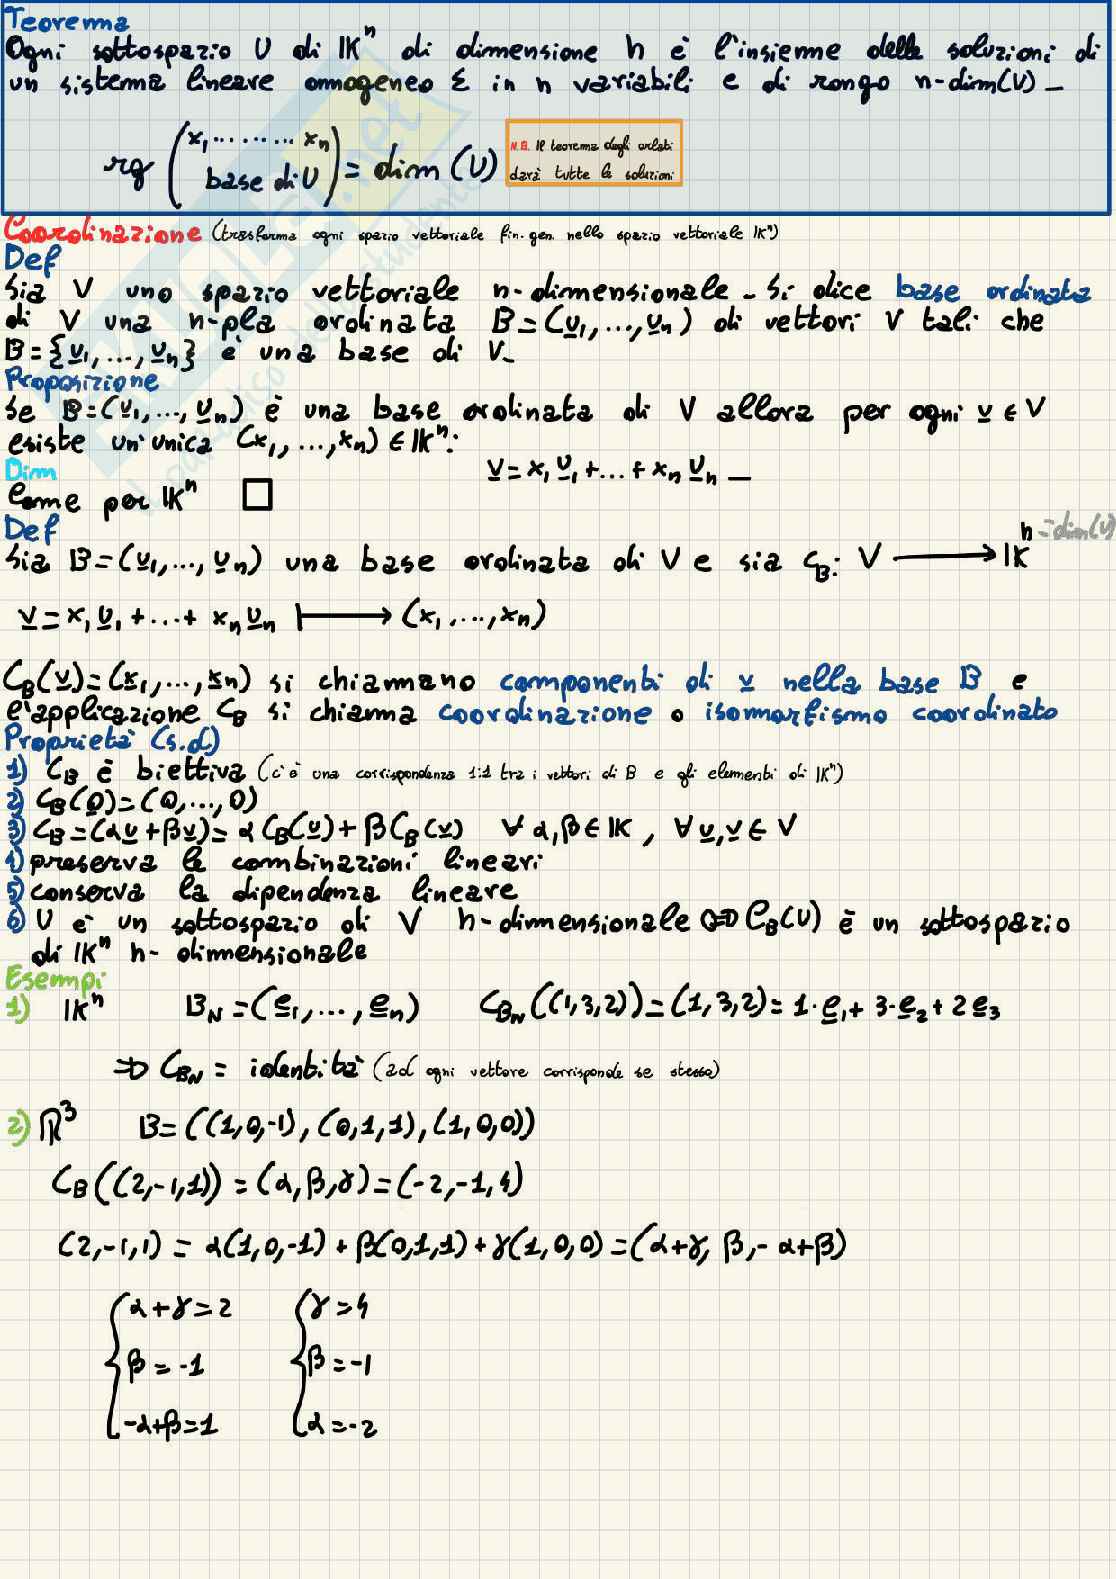 Teorema
Ogni sottospazio U di IK^n di dimensione h è l'insieme delle soluzioni di
un sistema lineare omogeneo Σ in n variabili e di rango n-dim(U) _
rg (x₁ ......... xₙ / base di U) = dim (U)
N.B. Il teorema degli orlati
darà tutte le soluzioni
Coordinazione (trasforma ogni spazio vettoriale fin. gen. nello spazio vettoriale IK^n)
Def
Sia V uno spazio vettoriale n-dimensionale _ Si dice base ordinata
di V una n-pla ordinata B=(v₁,...,vₙ) di vettori V tali che
B={v₁,...,vₙ} è una base di V_
Proposizione
Se B=(v₁,...,vₙ) è una base ordinata di V allora per ogni v ∈ V
esiste un'unica (x₁,...,xₙ) ∈ IK^n:
v = x₁v₁+...+xₙvₙ _
Dim
Come per IK^n □
Def
Sia B=(v₁,...,vₙ) una base ordinata di V e sia C_B: V ⟶ IK^n =dim(V)
v=x₁v₁+...+xₙvₙ ⟼ (x₁,...,xₙ)
C_B(v)=(x₁,...,xₙ) si chiamano componenti di v nella base B e
l'applicazione C_B si chiama coordinazione o isomorfismo coordinato
Proprietà (s.d)
1) C_B è biettiva (c'è una corrispondenza 1:1 tra i vettori di B e gli elementi di IK^n)
2) C_B(0)=(0,...,0)
3) C_B=(αu+βv)=αC_B(u)+βC_B(v) ∀ α,β∈IK, ∀ u,v∈V
4) preserva le combinazioni lineari
5) conserva la dipendenza lineare
6) U è un sottospazio di V h-dimensionale ⇔ C_B(U) è un sottospazio
di IK^n h-dimensionale
Esempi
1) IK^n B_N=(e₁,...,eₙ) C_B_N((1,3,2))=(1,3,2)=1·e₁+3·e₂+2e₃
⇒ C_B_N = identità (ad ogni vettore corrisponde se stesso)
2) ℝ³ B=((1,0,-1),(0,1,1),(1,0,0))
C_B((2,-1,1))=(α,β,γ)=(-2,-1,4)
(2,-1,1) = α(1,0,-1)+β(0,1,1)+γ(1,0,0)=(α+γ, β,-α+β)
α+γ=2 γ=4
β=-1 β=-1
-α+β=1 α=-2